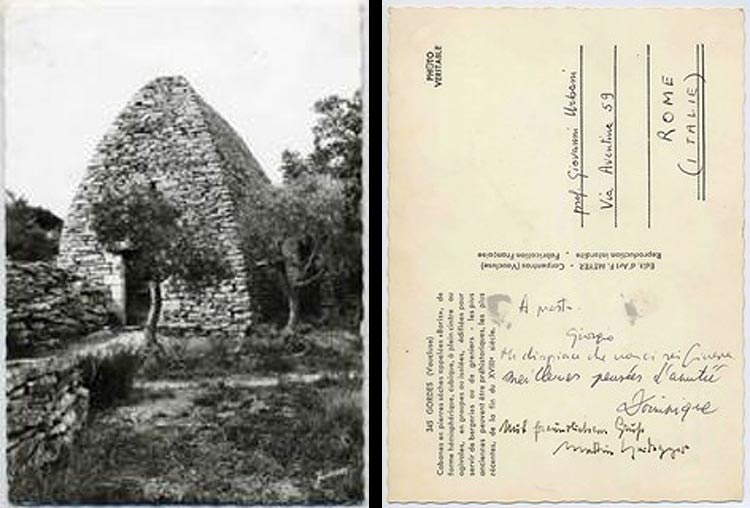 PHOTO
VÉRITABLE
prof. Giovanni Urbani
Via Aventina 59
ROME
(ITALIE)
Edit. d'Art F. MEYER - Carpentras (Vaucluse)
Reproduction interdite - Fabrication Française
345 GORDES (Vaucluse)
Cabanes en pierres sèches appelées «Boris», de
forme hémisphérique, cubique, à plein cintre ou
ogivales, en groupes ou isolées, édifiées pour
servir de bergeries ou de greniers - les plus
anciennes peuvent être préhistoriques, les plus
récentes, de la fin du XVIIIᵉ siècle.
A presto
Giorgio
Mi dispiace che non ci sei
meilleures pensées d'amitié
Dominique
Mit freundlichem Gruß
Martin Heidegger